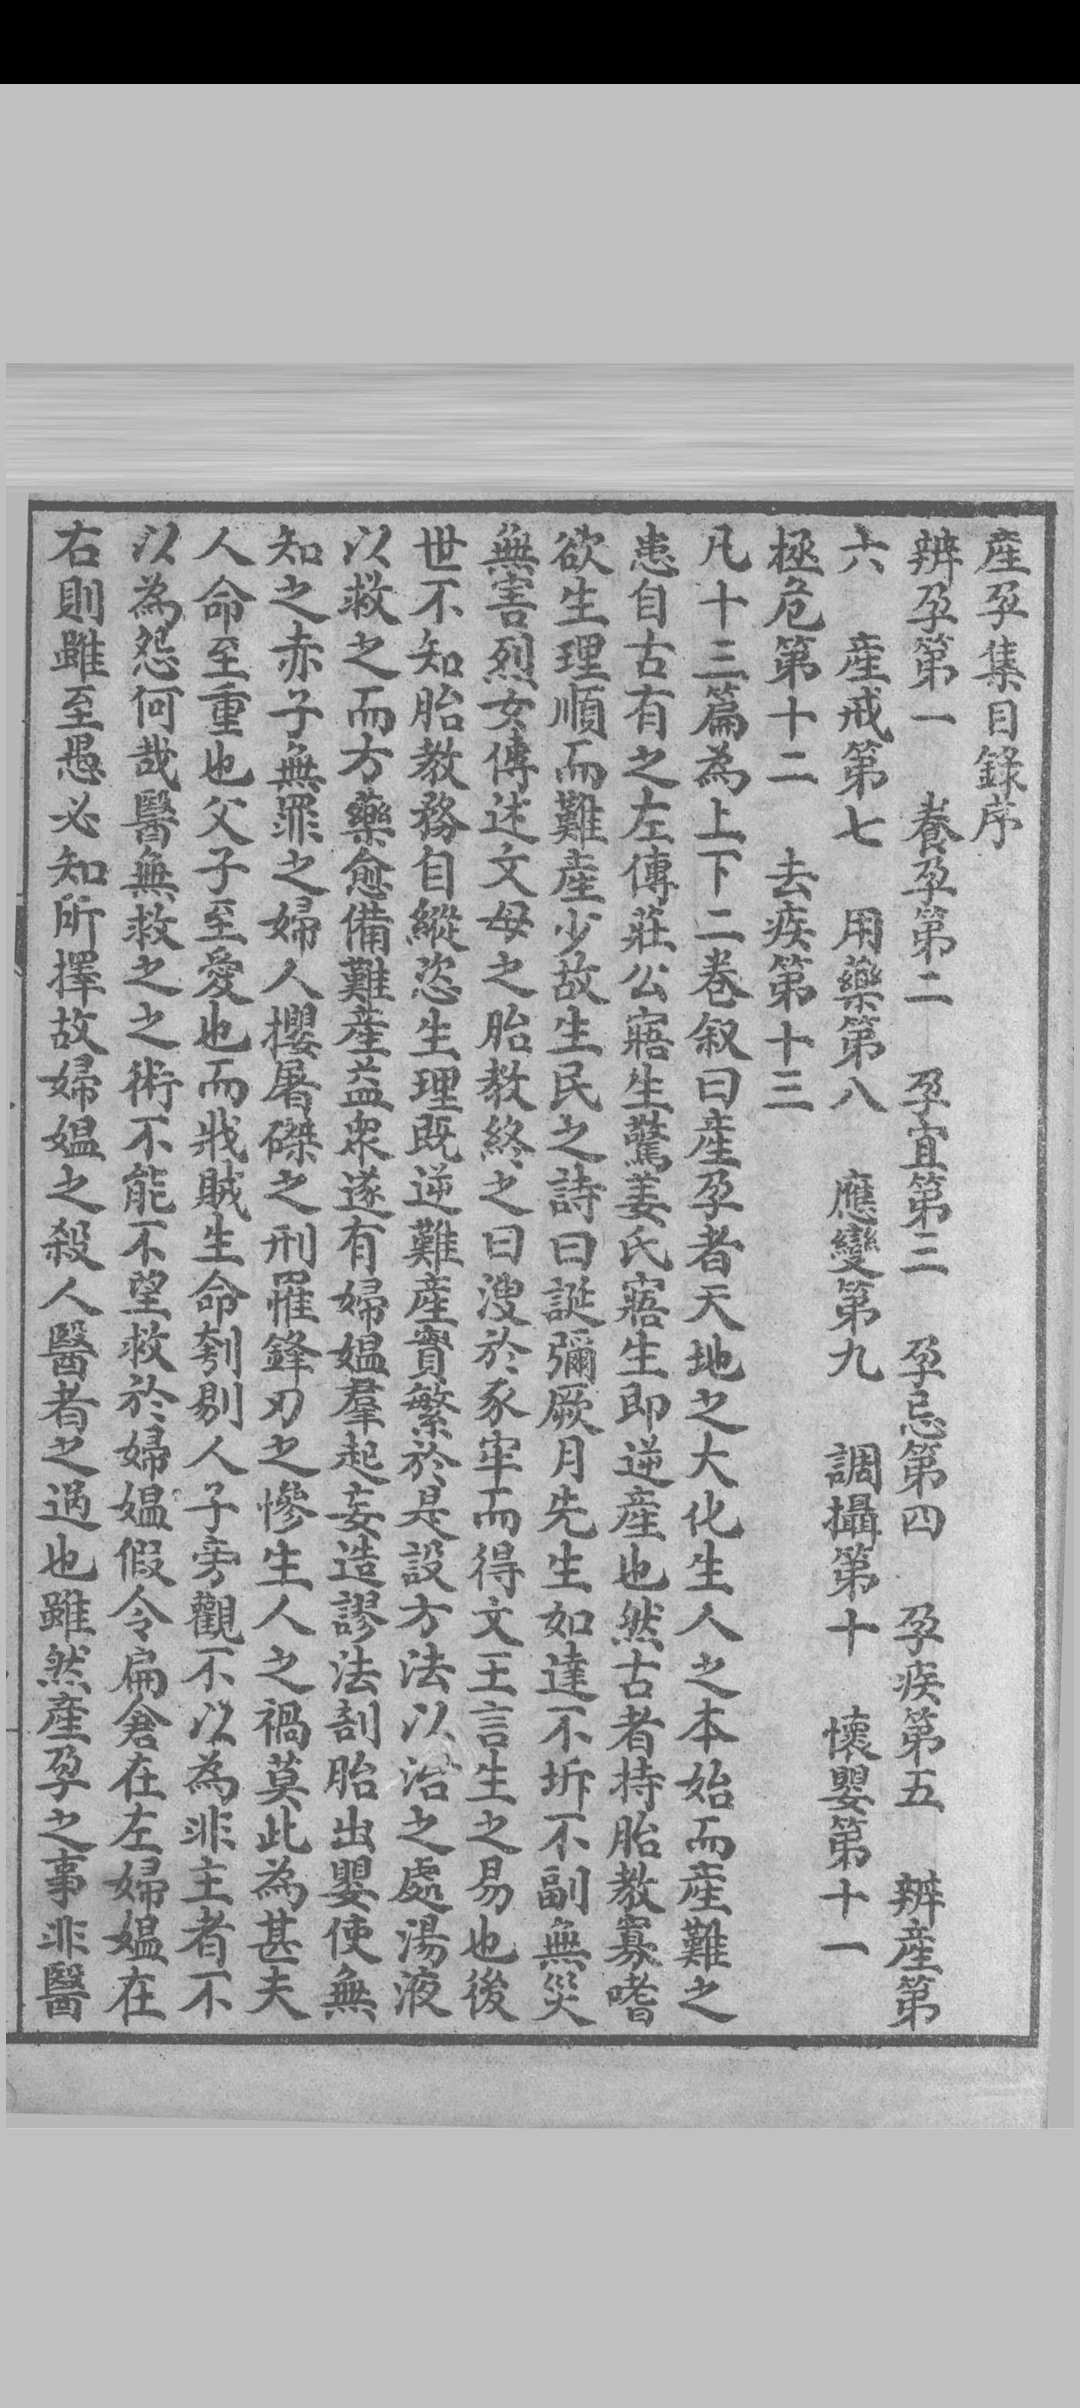 產孕集目錄序
辨孕第一　養孕第二　孕宜第三　孕忌第四　孕疾第五　辨產第
六　產戒第七　用藥第八　應變第九　調攝第十　懷嬰第十一
拯危第十二　去疾第十三
凡十三篇為上下二卷叙曰產孕者天地之大化生人之本始而產難之
患自古有之左傳莊公寤生驚姜氏寤生即逆產也然古者持胎教寡嗜
欲生理順而難產少故生民之詩曰誕彌厥月先生如達不坼不副無災
無害烈女傳述文母之胎教終之曰溲於豕牢而得文王言生之易也後
世不知胎教務自縱恣生理既逆難產實繁於是設方法以治之處湯液
以救之而方藥愈備難產益眾遂有婦媼羣起妄造謬法剖胎出嬰使無
知之赤子無罪之婦人攖屠磔之刑罹鋒刃之慘生人之禍莫此為甚夫
人命至重也父子至愛也而戕賊生命刳剔人子旁觀不以為非主者不
以為怨何哉醫無救之之術不能不望救於婦媼假令扁倉在左婦媼在
右則雖至愚必知所擇故婦媼之殺人醫者之過也雖然產孕之事非醫